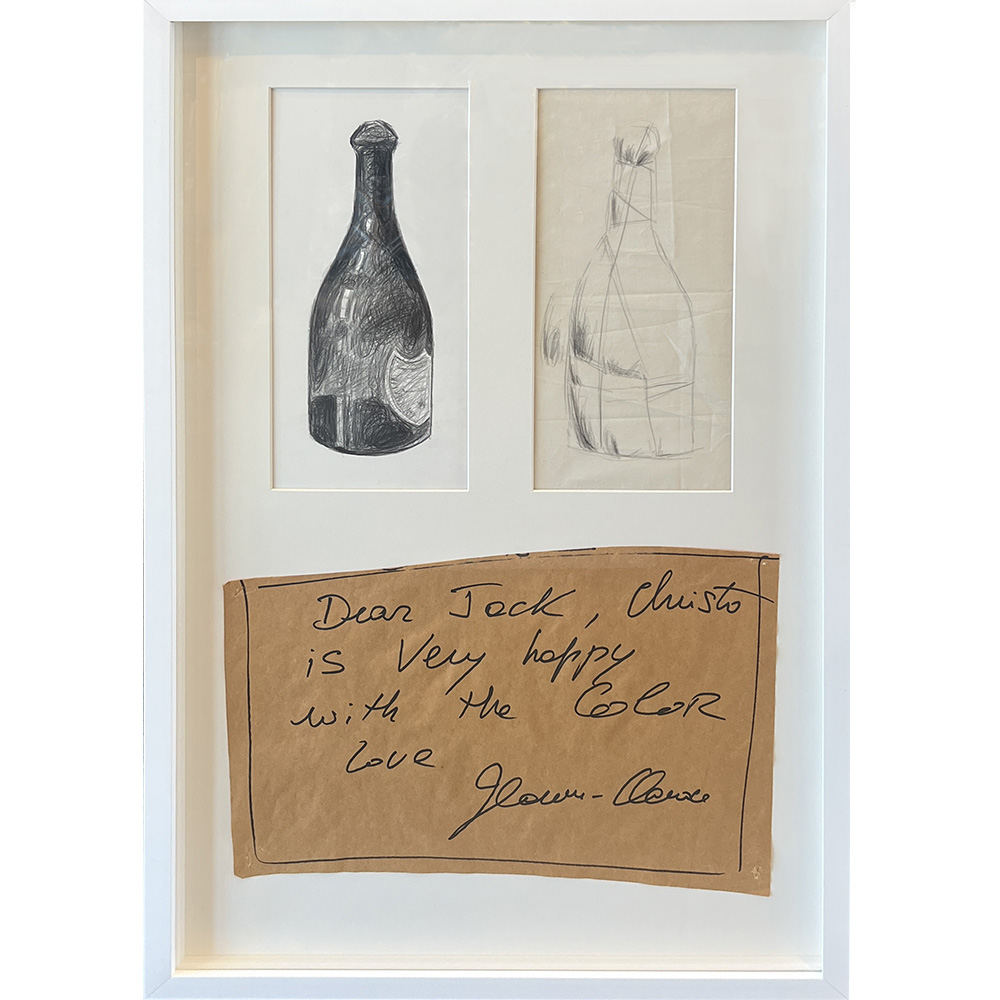 Dear Jack, Christo
is Very happy
with the COLOR
love
Jeanne-Claude